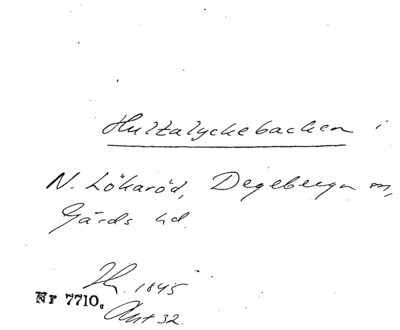 Hultalyckebacken i
N. Lökaröd, Degeberga sn,
Gärds hd.
1845
Nr 7710.
Ant 32.